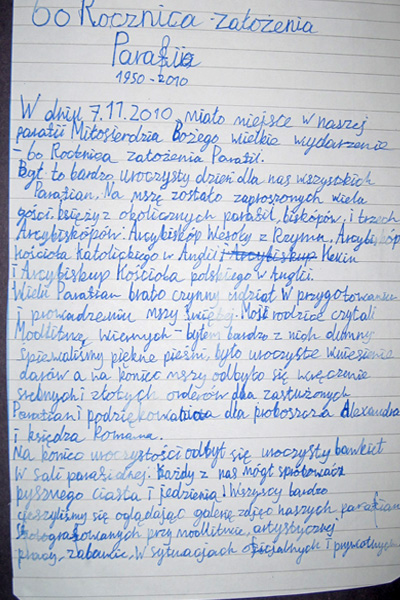 60 Rocznica założenia
Parafii
1950-2010
W dniu 7.11.2010 miało miejsce w naszej
parafii Miłosierdzia Bożego wielkie wydarzenie
- 60 Rocznica założenia Parafii.
Był to bardzo uroczysty dzień dla nas wszystkich
Parafian. Na mszę zostało zaproszonych wielu
gości, księży z okolicznych parafii, biskópów, i trzech
Arcybiskópów: Arcybiskóp Wesoły z Rzymu, Arcybiskóp
kościoła Katolickiego w Anglii i Arcybiskup Kevin
i Arcybiskup Kościoła polskiego w Anglii.
Wielu Parafian brało czynny udział w przygotowaniu
i prowadzeniu mszy świętej. Moji rodzice czytali
Modlitwę wiernych - byłem bardzo z nich dumny
śpiewaliśmy piękne pieśni, było uroczyste wniesienie
darów a na koniec mszy odbyło się wręczenie
srebnych i złotych orderów dla zasłużonych
Parafian i podziękowania dla proboszcza Alexandra
i księdza Romana.
Na koniec uroczystości odbył się uroczysty bankiet
w sali parafialnej. Każdy z nas mógł spróbować
pysznego ciasta i jedzenia. Wszyscy bardzo
cieszyliśmy się oglądając galerię zdjęć naszych parafian
Sfotografowanych przy modlitwie, artystycznej
pracy, zabawie, w sytuacjach oficjalnych i prywatnych